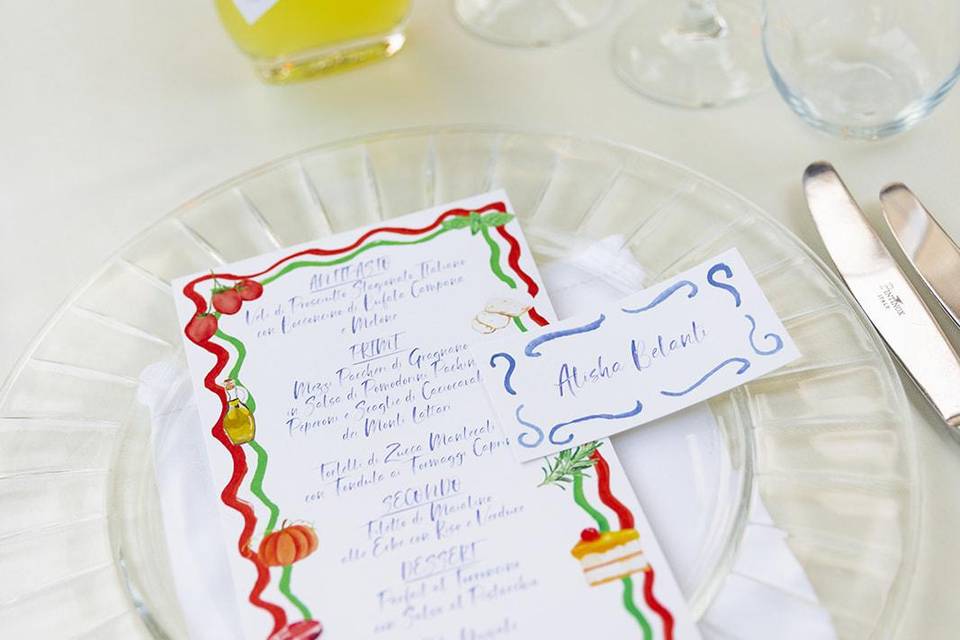 ANTIPASTO
Veli di Prosciutto Stagionato Italiano
con Bocconcino di Bufala Campana
e Melone
PRIMI
Mezzi Paccheri di Gragnano
in Salsa di Pomodorini Pachin
Peperoni e Scaglie di Caciocaval
dei Monti Lattari
Tortelli di Zucca Mantecati
con Fonduta ai Formaggi Capri
SECONDO
Filetto di Maialino
alle Erbe con Riso e Verdure
DESSERT
Parfait al Torroncino
con Salsa al Pistacchio
Alisha Belanti
ITALY